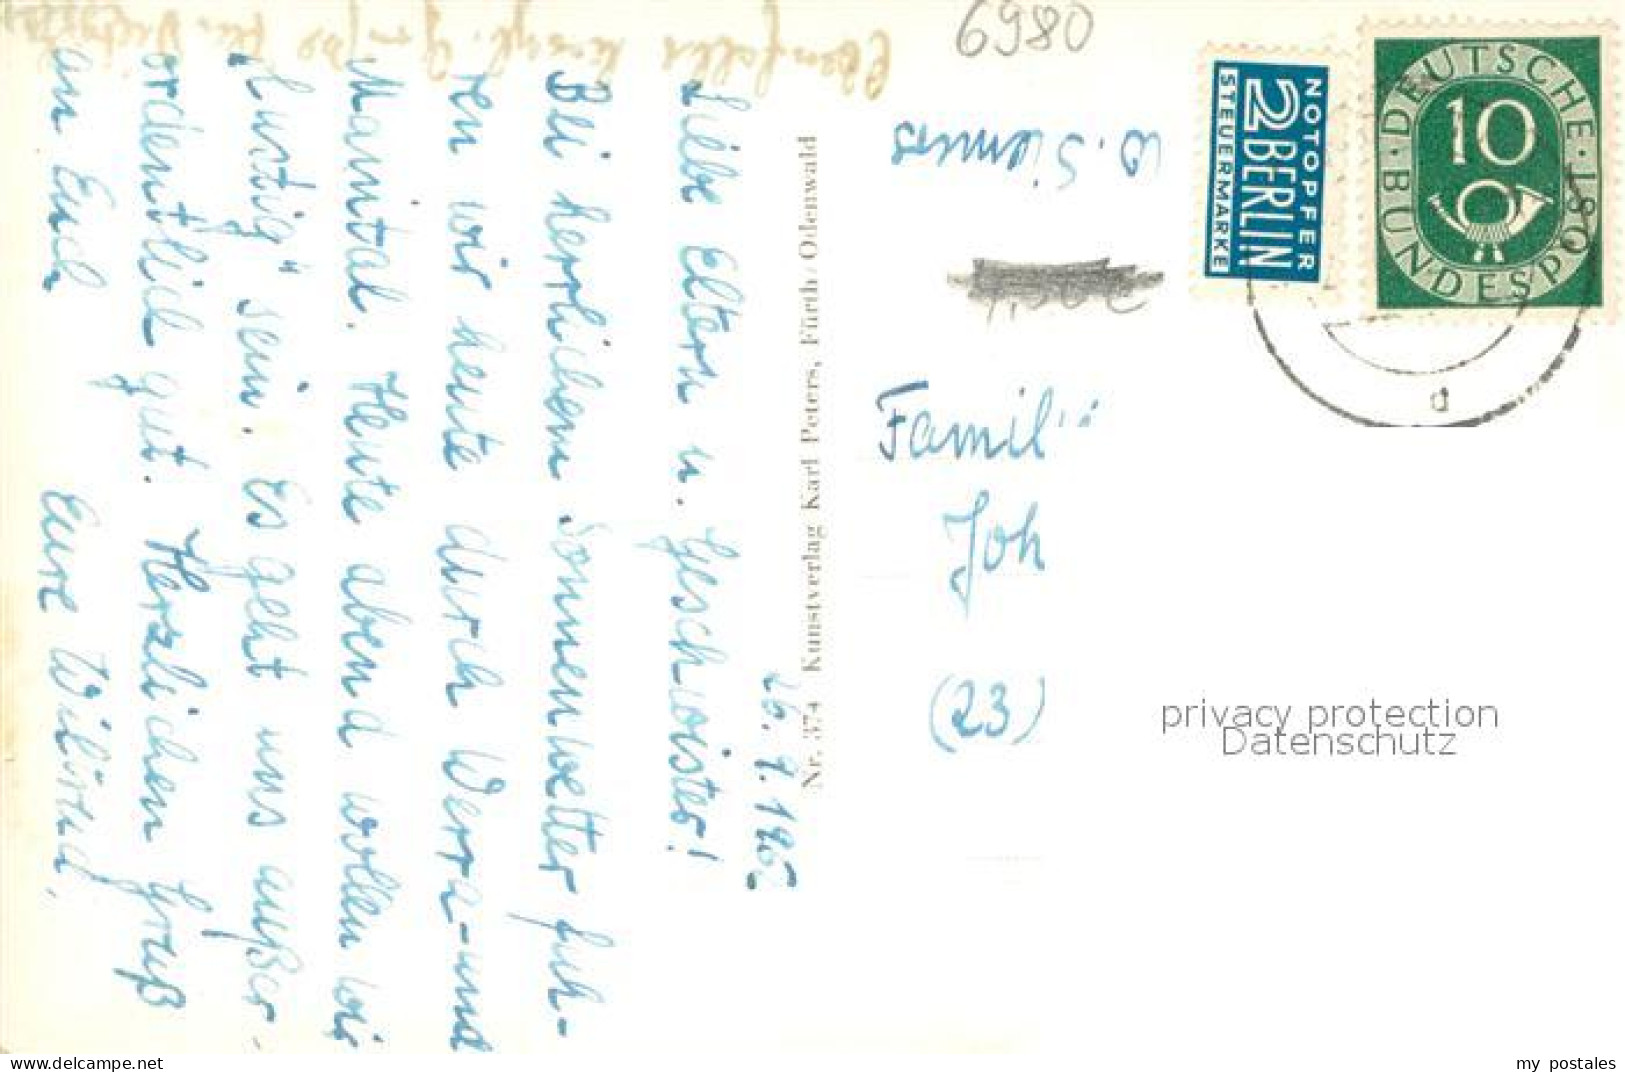 26. 9. 195
Liebe Eltern u. Geschwister!
Bei herrlichem Sonnenwetter fuh-
ren wir heute durch Werra- und
Maintal. Heute abend wollen wir
"lustig" sein. Es geht uns außer-
ordentlich gut. Herzlichen Gruß
an Euch Eure Wiltrud.
Nr. 374 Kunstverlag Karl Peters, Fürth/Odenwald
6980
NOTOPFER
2 BERLIN
STEUERMARKE
DEUTSCHE BUNDESPOST
10
d
Famili
Joh
(23)
privacy protection
Datenschutz
www.delcampe.net
my postales